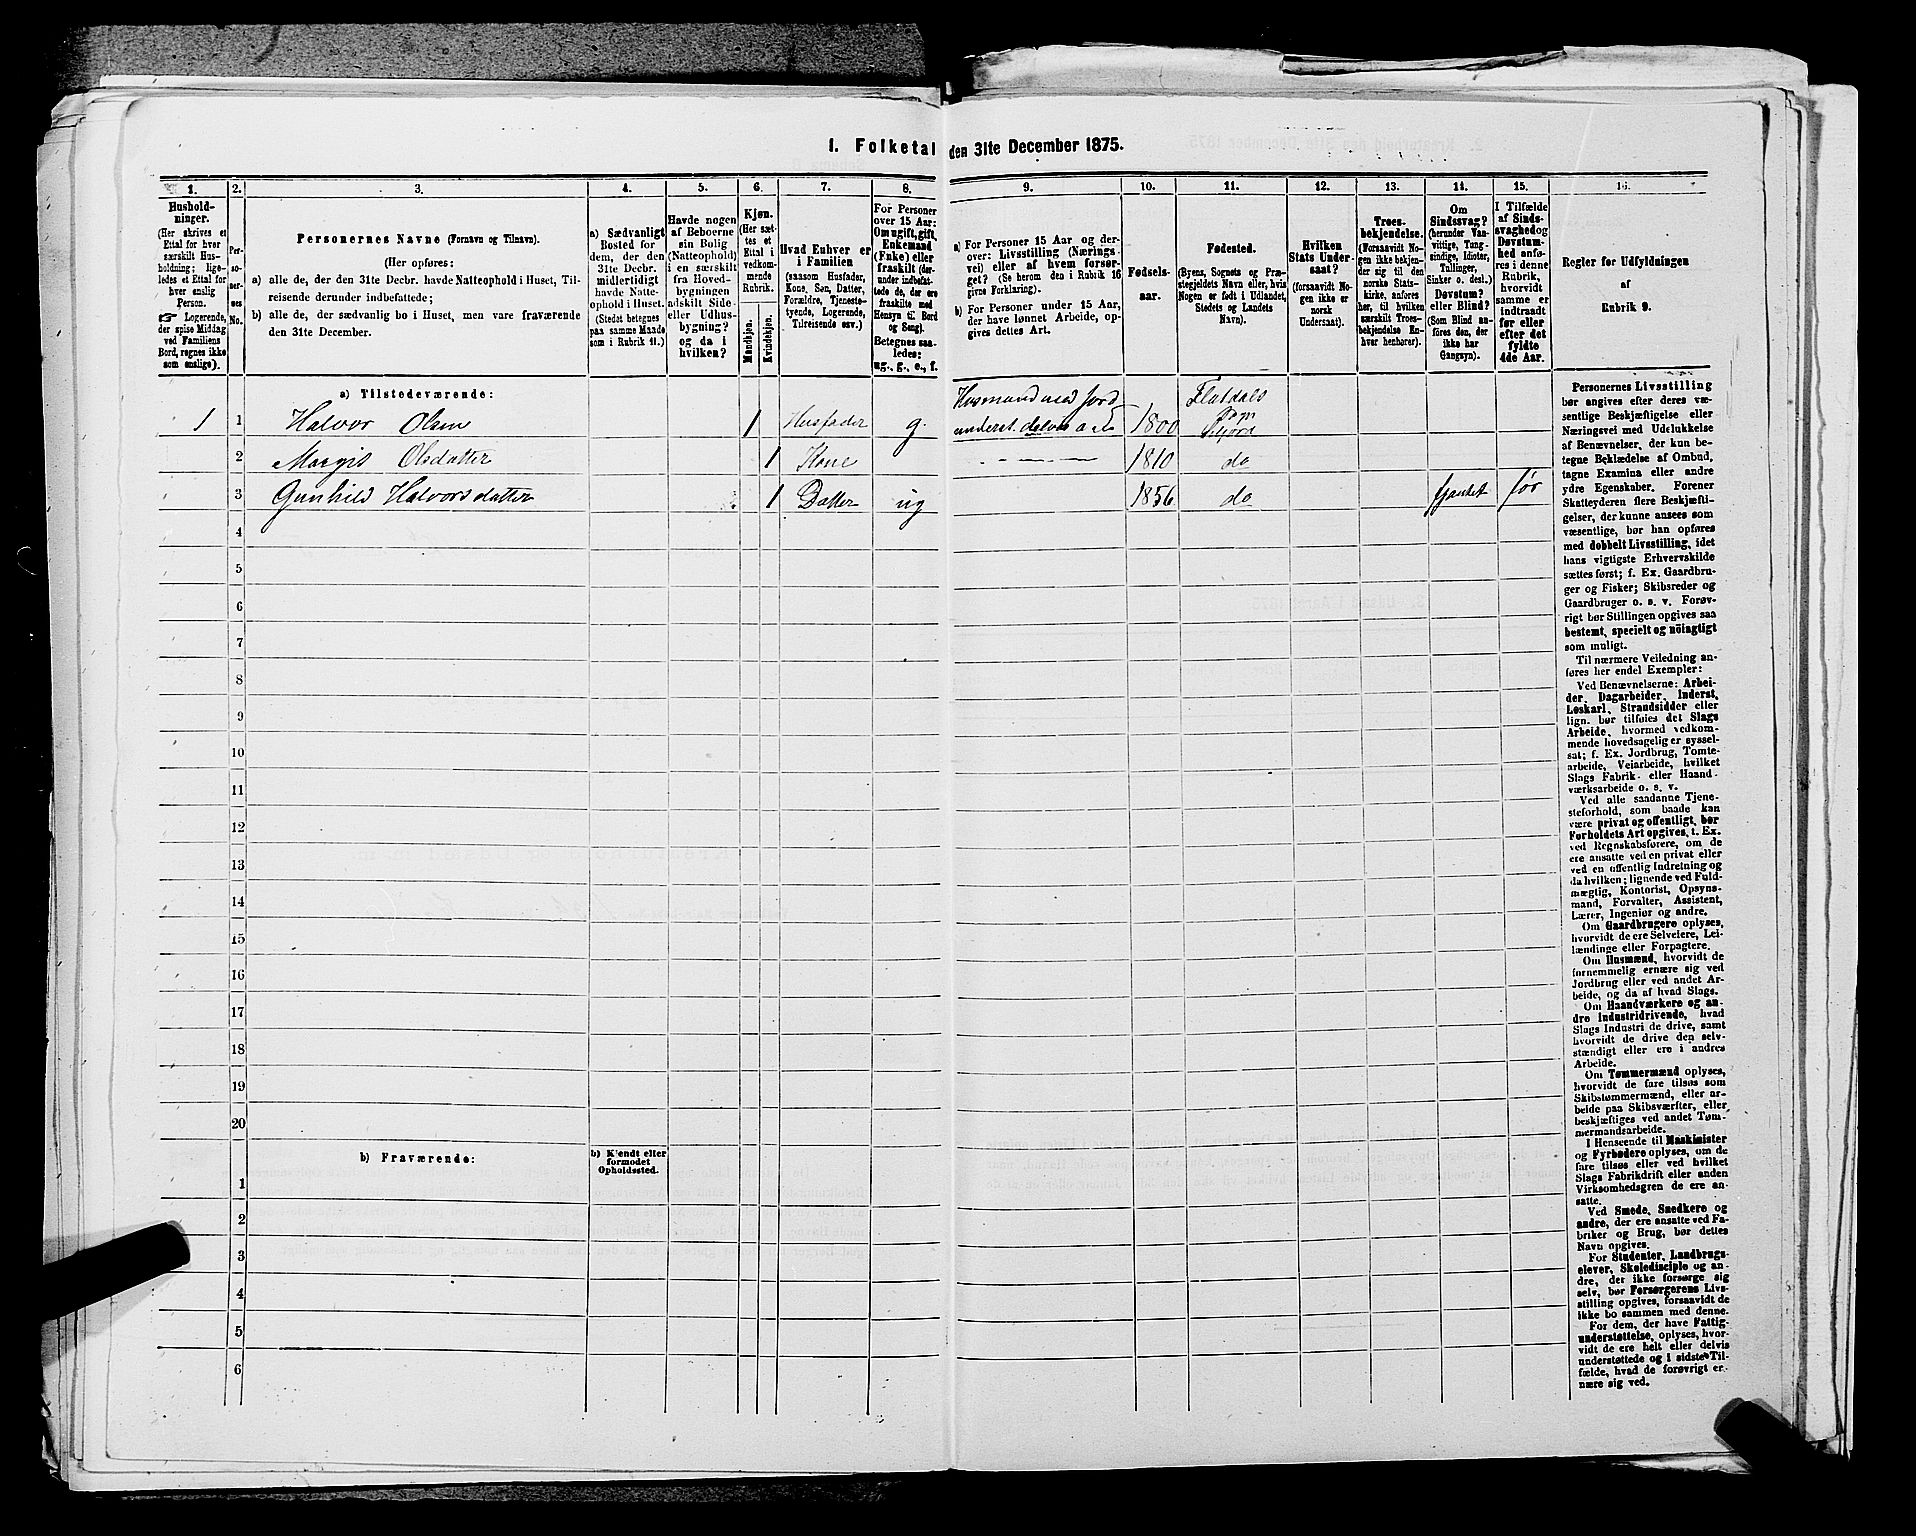 1. Folketal den 31te December 1875.
1. 2. 3. 4. 5. 6. 7. 8. 9. 10. 11. 12. 13. 14. 15. 16.
Hushold-
ninger.
(Her skrives et
Ettal for hver
særskilt Hus-
holdning; lige-
ledes et Ettal for
hver enslig
Person.
☞ Logerende,
der spise Middag
ved Familiens
Bord, regnes ikke
som enslige).
Per-
so-
ner-
nes
No.
Personernes Navne (Fornavn og Tilnavn).
(Her opføres:
a) alle de, der den 31te Decbr. havde Natteophold i Huset, Til-
reisende derunder indbefattede;
b) alle de, der sædvanlig bo i Huset, men vare fraværende
den 31te December.
a) Sædvanligt
Bosted for
dem, der den
31te Decbr.
midlertidigt
havde Natte-
ophold i Huset.
(Stedet betegnes
paa samme Maade
som i Rubrik 11.)
Havde nogen
af Beboerne
sin Bolig
(Natteophold)
i en særskilt
fra Hoved-
bygningen
adskilt Side-
eller Udhus-
bygning?
og da i
hvilken?
Kjøn.
(Her sæt-
tes et
Ettal i
vedkom-
mende
Rubrik.
Mandkjøn.
Kvindekjøn.
Hvad Enhver er
i Familien
(saasom Husfader,
Kone, Søn, Datter,
Forældre, Tjeneste-
tyende, Logerende,
Tilreisende osv.)
For Personer
over 15 Aar:
Om ugift, gift,
Enkemand
(Enke) eller
fraskilt (der-
under indbefat-
tede de, der ere
fraskilte med
Hensyn til Bord
og Seng).
Betegnes saa-
ledes:
ug., g., e., f.
a) For Personer 15 Aar og der-
over: Livsstilling (Nærings-
vei) eller af hvem forsør-
get? (Se herom den i Rubrik 16
givne Forklaring).
b) For Personer under 15 Aar,
der have lønnet Arbeide, op-
gives dettes Art.
Fødsels-
aar.
Fødested.
(Byens, Sognets og Præ-
stegjeldets Navn eller, hvis
Nogen er født i Udlandet,
Stedets og Landets
Navn).
Hvilken
Stats Under-
saat?
(forsaavidt No-
gen ikke er
norsk
Undersaat).
Troes-
bekjendelse.
(Forsaavidt No-
gen ikke bekjen-
der sig til den
norske Stats-
kirke, anføres
her, til hvilken
særskilt Troes-
bekjendelse En-
hver henhører).
Om
Sindssvag?
(herunder Van-
vittige, Tung-
sindige, Idioter,
Tullinger,
Sinker o. desl.)
Døvstum?
eller Blind?
(Som Blind an-
føres den, der
ikke har
Gangsyn).
I Tilfælde
af Sinds-
svaghed og
Døvstum-
hed anfø-
res i denne
Rubrik,
hvorvidt
samme er
indtraadt
før eller
efter det
fyldte
4de Aar.
Regler for Udfyldningen
af
Rubrik 9.
a) Tilstedeværende:
1 1 Halvor Olsen 1 Husfader g. Husmand med Jord underst. delvis 1800 Flatdals Sogn
2 Margit Olsdatter 1 Kone - - - 1810 do
3 Gunhild Halvorsdatter 1 Datter ug 1856 do før
4
5
6
7
8
9
10
11
12
13
14
15
16
17
18
19
20
b) Fraværende:
b) Kjendt eller
formodet
Opholdssted.
1
2
3
4
5
6
Personernes Livsstilling
bør angives efter deres væ-
sentlige Beskjæftigelse eller
Næringsvei med Udelukkelse
af Benævnelser, der kun be-
tegne Beklædelse af Ombud,
tagne Examina eller andre
ydre Egenskaber. Forener
Skatteyderen flere Beskjæfti-
gelser, der kunne ansees som
væsentlige, bør han opføres
med dobbelt Livsstilling, idet
hans vigtigste Erhvervskilde
sættes først; f. Ex. Gaardbru-
ger og Fisker; Skibsreder og
Gaardbruger o. s. v. Forøv-
rigt bør Stillingen opgives saa
bestemt, specielt og nöiagtigt
som muligt.
Til nærmere Veiledning an-
føres her endel Exempler:
Ved Benævnelserne: Arbei-
der, Dagarbeider, Inderst,
Løskarl, Strandsidder eller
lign. bør tilføies det Slags
Arbeide, hvormed vedkom-
mende hovedsagelig er syssel-
sat; f. Ex. Jordbrug, Tomte-
arbeide, Veiarbeide, hvilket
Slags Fabrik- eller Haand-
værksarbeide o. s. v.
Ved alle saadanne Tjene-
steforhold, som baade kan
være privat og offentligt, bør
Forholdets Art opgives, t. Ex.
ved Regnskabsførere, om de
ere ansatte ved en privat eller
ved en offentlig Indretning og
da hvilken; lignende ved Fuld-
mægtig, Kontorist, Opsyns-
mand, Forvalter, Assistent,
Lærer, Ingeniør og andre.
Om Gaardbrugere oplyses,
hvorvidt de ere Selveiere, Lei-
lændinge eller Forpagtere.
Om Husmænd, hvorvidt de
fornemmelig ernære sig ved
Jordbrug eller ved andet Ar-
beide, og da af hvad Slags.
Om Haandværkere og an-
dre Industridrivende, hvad
Slags Industri de drive, samt
hvorvidt de drive den selv-
stændigt eller ere i andres
Arbeide.
Om Tømmermænd oplyses,
hvorvidt de fare tilsøs som
Skibstømmermænd, eller ar-
beide paa Skibsværfter, eller
beskjæftiges ved andet Tøm-
mermandsarbeide.
I Henseende til Maskinister
og Fyrbødere oplyses, om de
fare tilsøs eller ved hvilket
Slags Fabrikdrift eller anden
Virksomhedsgren de ere an-
satte.
Ved Smede, Snedkere og
andre, der ere ansatte ved Fa-
briker og Brug, bør dettes
Navn opgives.
For Studenter, Landbrugs-
elever, Skoledisciple og an-
dre, der ikke forsørge sig
selv, bør Forsørgerens Livs-
stilling opgives, forsaavidt de
ikke bo sammen med denne.
For dem, der have Fattig-
understøttelse, oplyses, hvor-
vidt de ere helt eller delvis
understøttede og i sidste Til-
fælde, hvad de forøvrigt er-
nære sig ved.